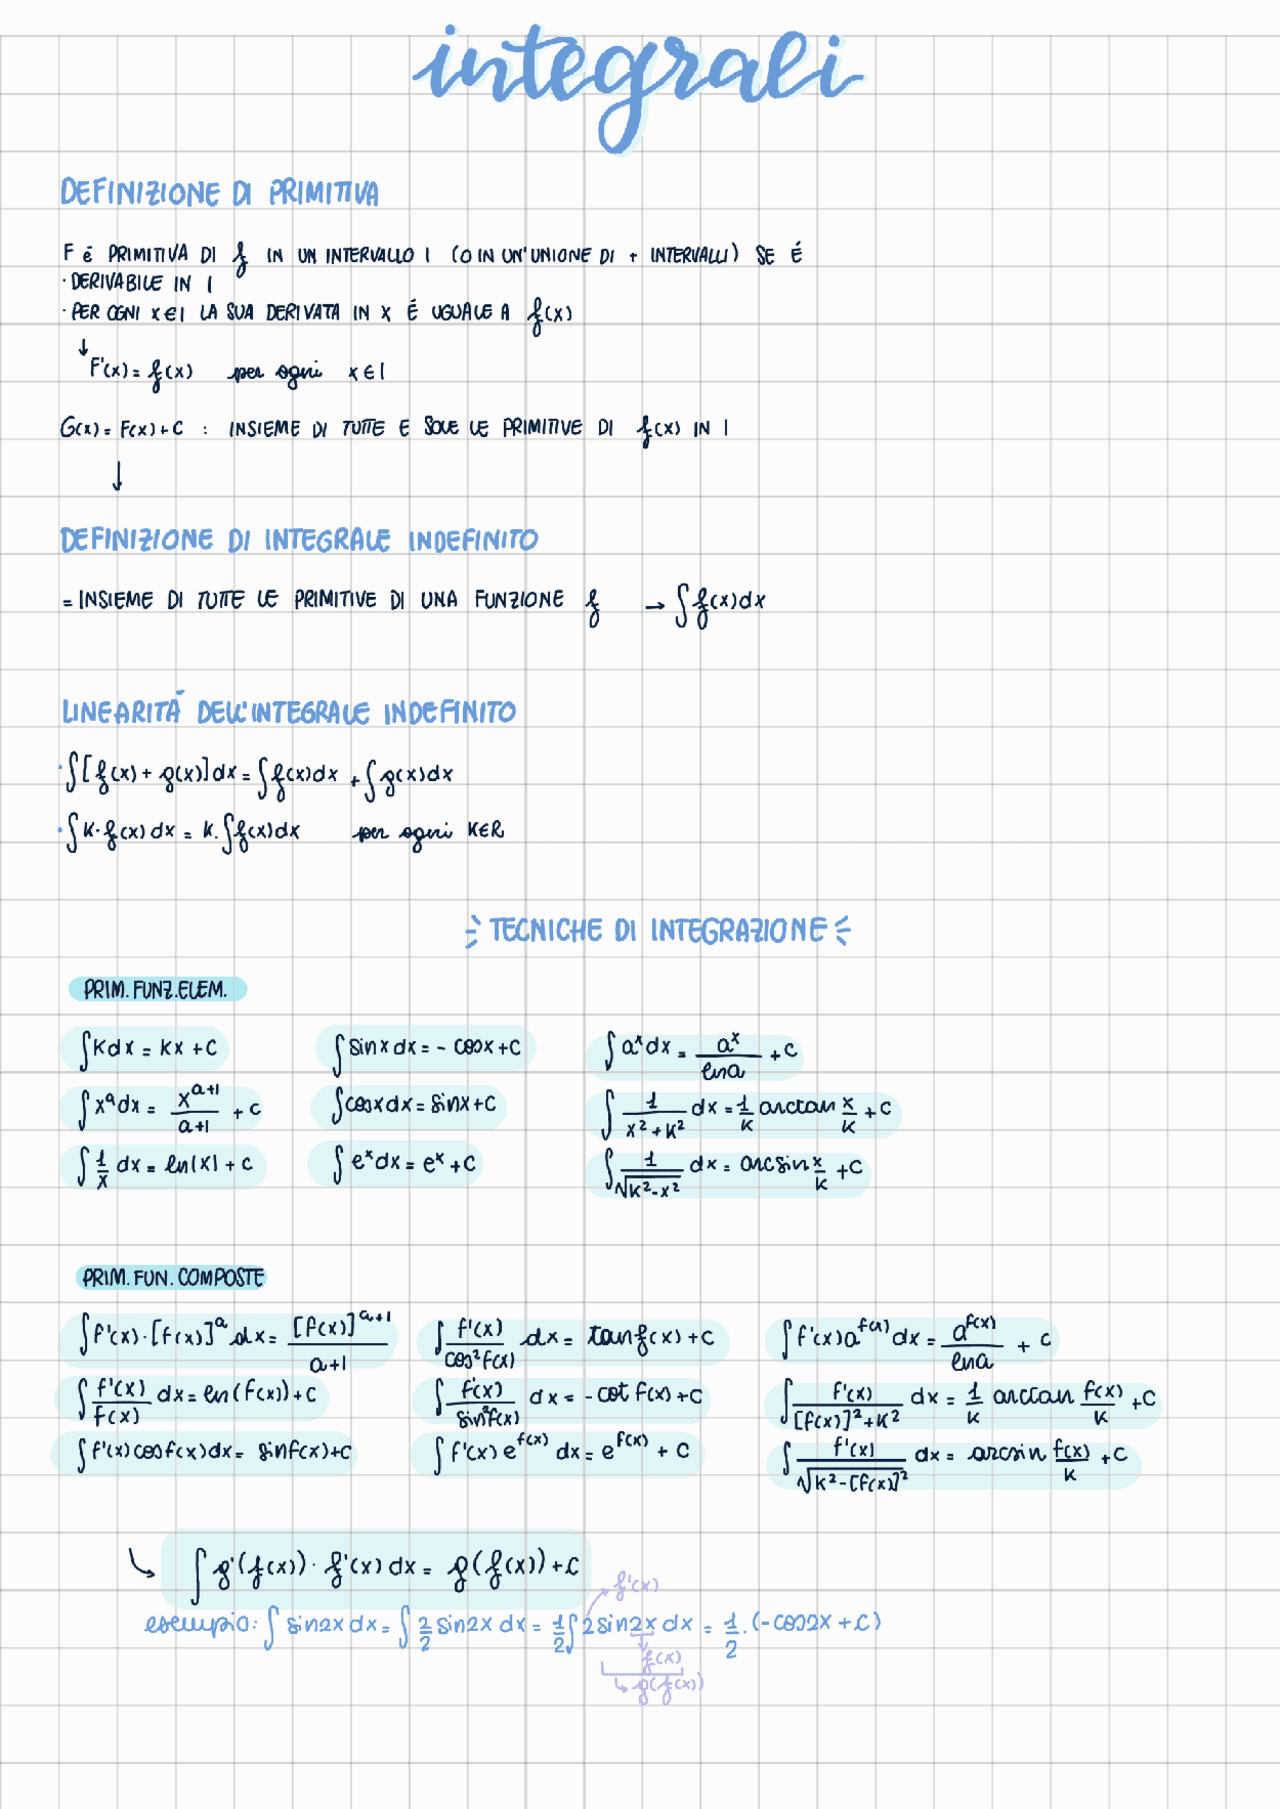 integrali
DEFINIZIONE DI PRIMITIVA
F é PRIMITIVA DI f IN UN INTERVALLO I (O IN UN'UNIONE DI + INTERVALLI) SE É
· DERIVABILE IN I
· PER OGNI X∈I LA SUA DERIVATA IN X É UGUALE A f(x)
↓
F'(x) = f(x) per ogni x∈I
G(x) = F(x) + C : INSIEME DI TUTTE E SOLE LE PRIMITIVE DI f(x) IN I
↓
DEFINIZIONE DI INTEGRALE INDEFINITO
= INSIEME DI TUTTE LE PRIMITIVE DI UNA FUNZIONE f → ∫f(x)dx
LINEARITÀ DELL'INTEGRALE INDEFINITO
· ∫[f(x) + g(x)]dx = ∫f(x)dx + ∫g(x)dx
· ∫K·f(x)dx = k·∫f(x)dx per ogni K∈R
TECNICHE DI INTEGRAZIONE
PRIM. FUNZ. ELEM.
∫Kdx = kx + C ∫sinxdx = -cosx + C ∫a^x dx = a^x/lna + C
∫x^a dx = x^(a+1)/(a+1) + C ∫cosxdx = sinx + C ∫1/(x²+K²) dx = 1/K arctan x/K + C
∫1/x dx = ln|x| + C ∫e^x dx = e^x + C ∫1/√(K²-x²) dx = arcsin x/K + C
PRIM. FUN. COMPOSTE
∫f'(x)·[f(x)]^a dx = [f(x)]^(a+1)/(a+1) ∫f'(x)/cos²f(x) dx = tanf(x) + C ∫f'(x)a^f(x) dx = a^f(x)/lna + C
∫f'(x)/f(x) dx = ln(f(x)) + C ∫f'(x)/sin²f(x) dx = -cot f(x) + C ∫f'(x)/([f(x)]²+K²) dx = 1/K arctan f(x)/K + C
∫f'(x)cosf(x)dx = sinf(x) + C ∫f'(x)e^f(x) dx = e^f(x) + C ∫f'(x)/√(K²-[f(x)]²) dx = arcsin f(x)/K + C
∫g'(f(x))·f'(x)dx = g(f(x)) + C
f'(x)
esempio: ∫sin2xdx = ∫2/2 sin2x dx = 1/2∫2sin2x dx = 1/2·(-cos2x + C)
f(x)
↳ g(f(x))